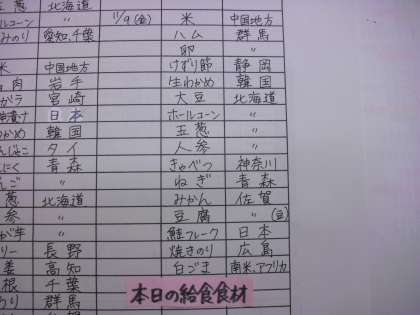 葱 北海道
ールコーン 〃 11/9(金) 米 中国地方
みのり 愛知、千葉 ハム 群馬
卵 〃
米 中国地方 けずり節 静岡
肉 岩手 生わかめ 韓国
がラ 宮崎 大豆 北海道
漬け 日本 ホールコーン 〃
かめ 韓国 玉葱 〃
タイ 人参 〃
にく 青森 きゃべつ 神奈川
んご 〃 ねぎ 青森
葱 北海道 みかん 佐賀
参 〃 豆腐 〃(豆)
が芋 〃 鮭フレーク 日本
リー 長野 焼きのり 広島
姜 高知 白ごま 南米、アフリカ
根 千葉
わり 群馬
本日の給食食材